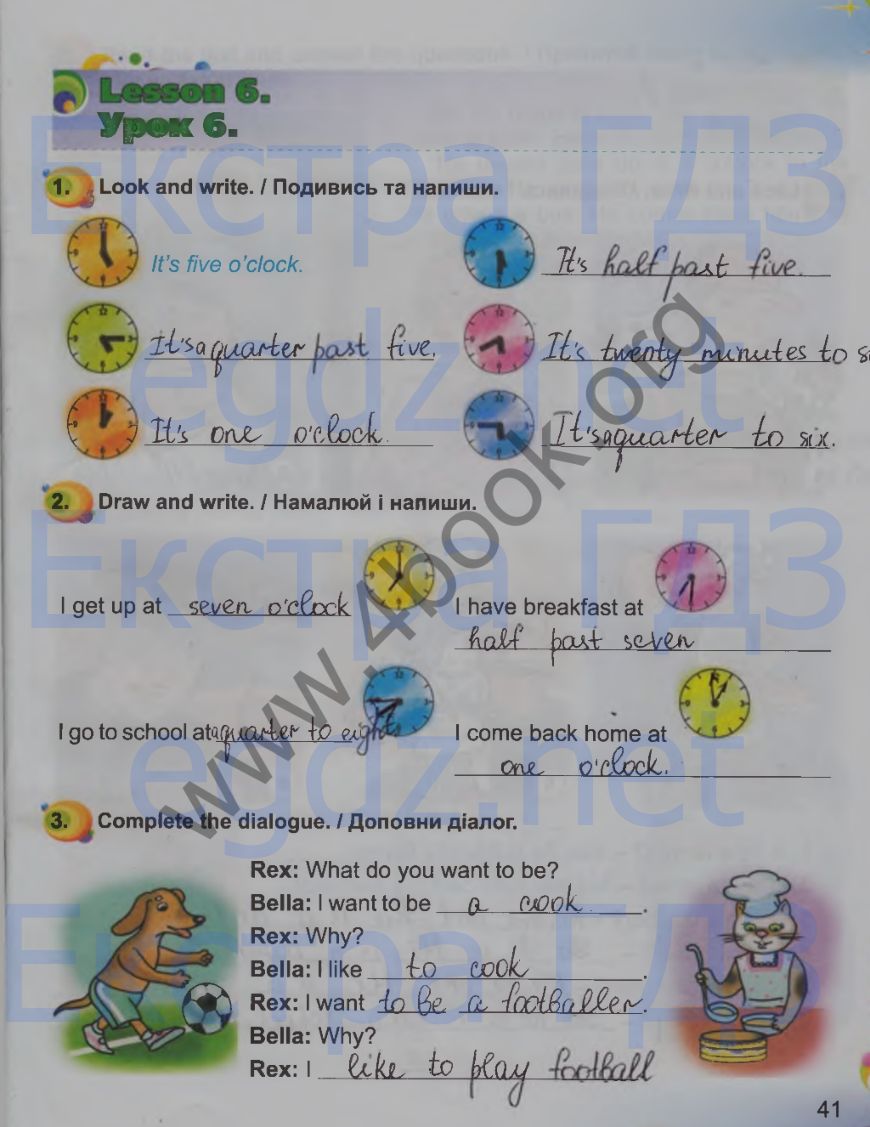 Lesson 6.
Урок 6.
1. Look and write. / Подивись та напиши.
It's five o'clock.
It's half past five.
It's a quarter past five.
It's twenty minutes to
It's one o'clock.
It's a quarter to six.
2. Draw and write. / Намалюй і напиши.
I get up at seven o'clock
I have breakfast at
half past seven
I go to school at a quarter to eight
I come back home at
one o'clock.
3. Complete the dialogue. / Доповни діалог.
Rex: What do you want to be?
Bella: I want to be a cook.
Rex: Why?
Bella: I like to cook.
Rex: I want to be a footballer.
Bella: Why?
Rex: I like to play football
41
Екстра ГДЗ
egdz.net
Екстра ГДЗ
egdz.net
Екстра ГДЗ
www.4book.org